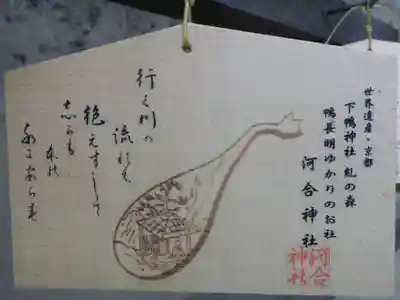 世界遺産・京都
下鴨神社 糺の森
鴨長明ゆかりのお社
河合神社
河合
神社
行く川の
流れも
絶えずして
志かも
本の